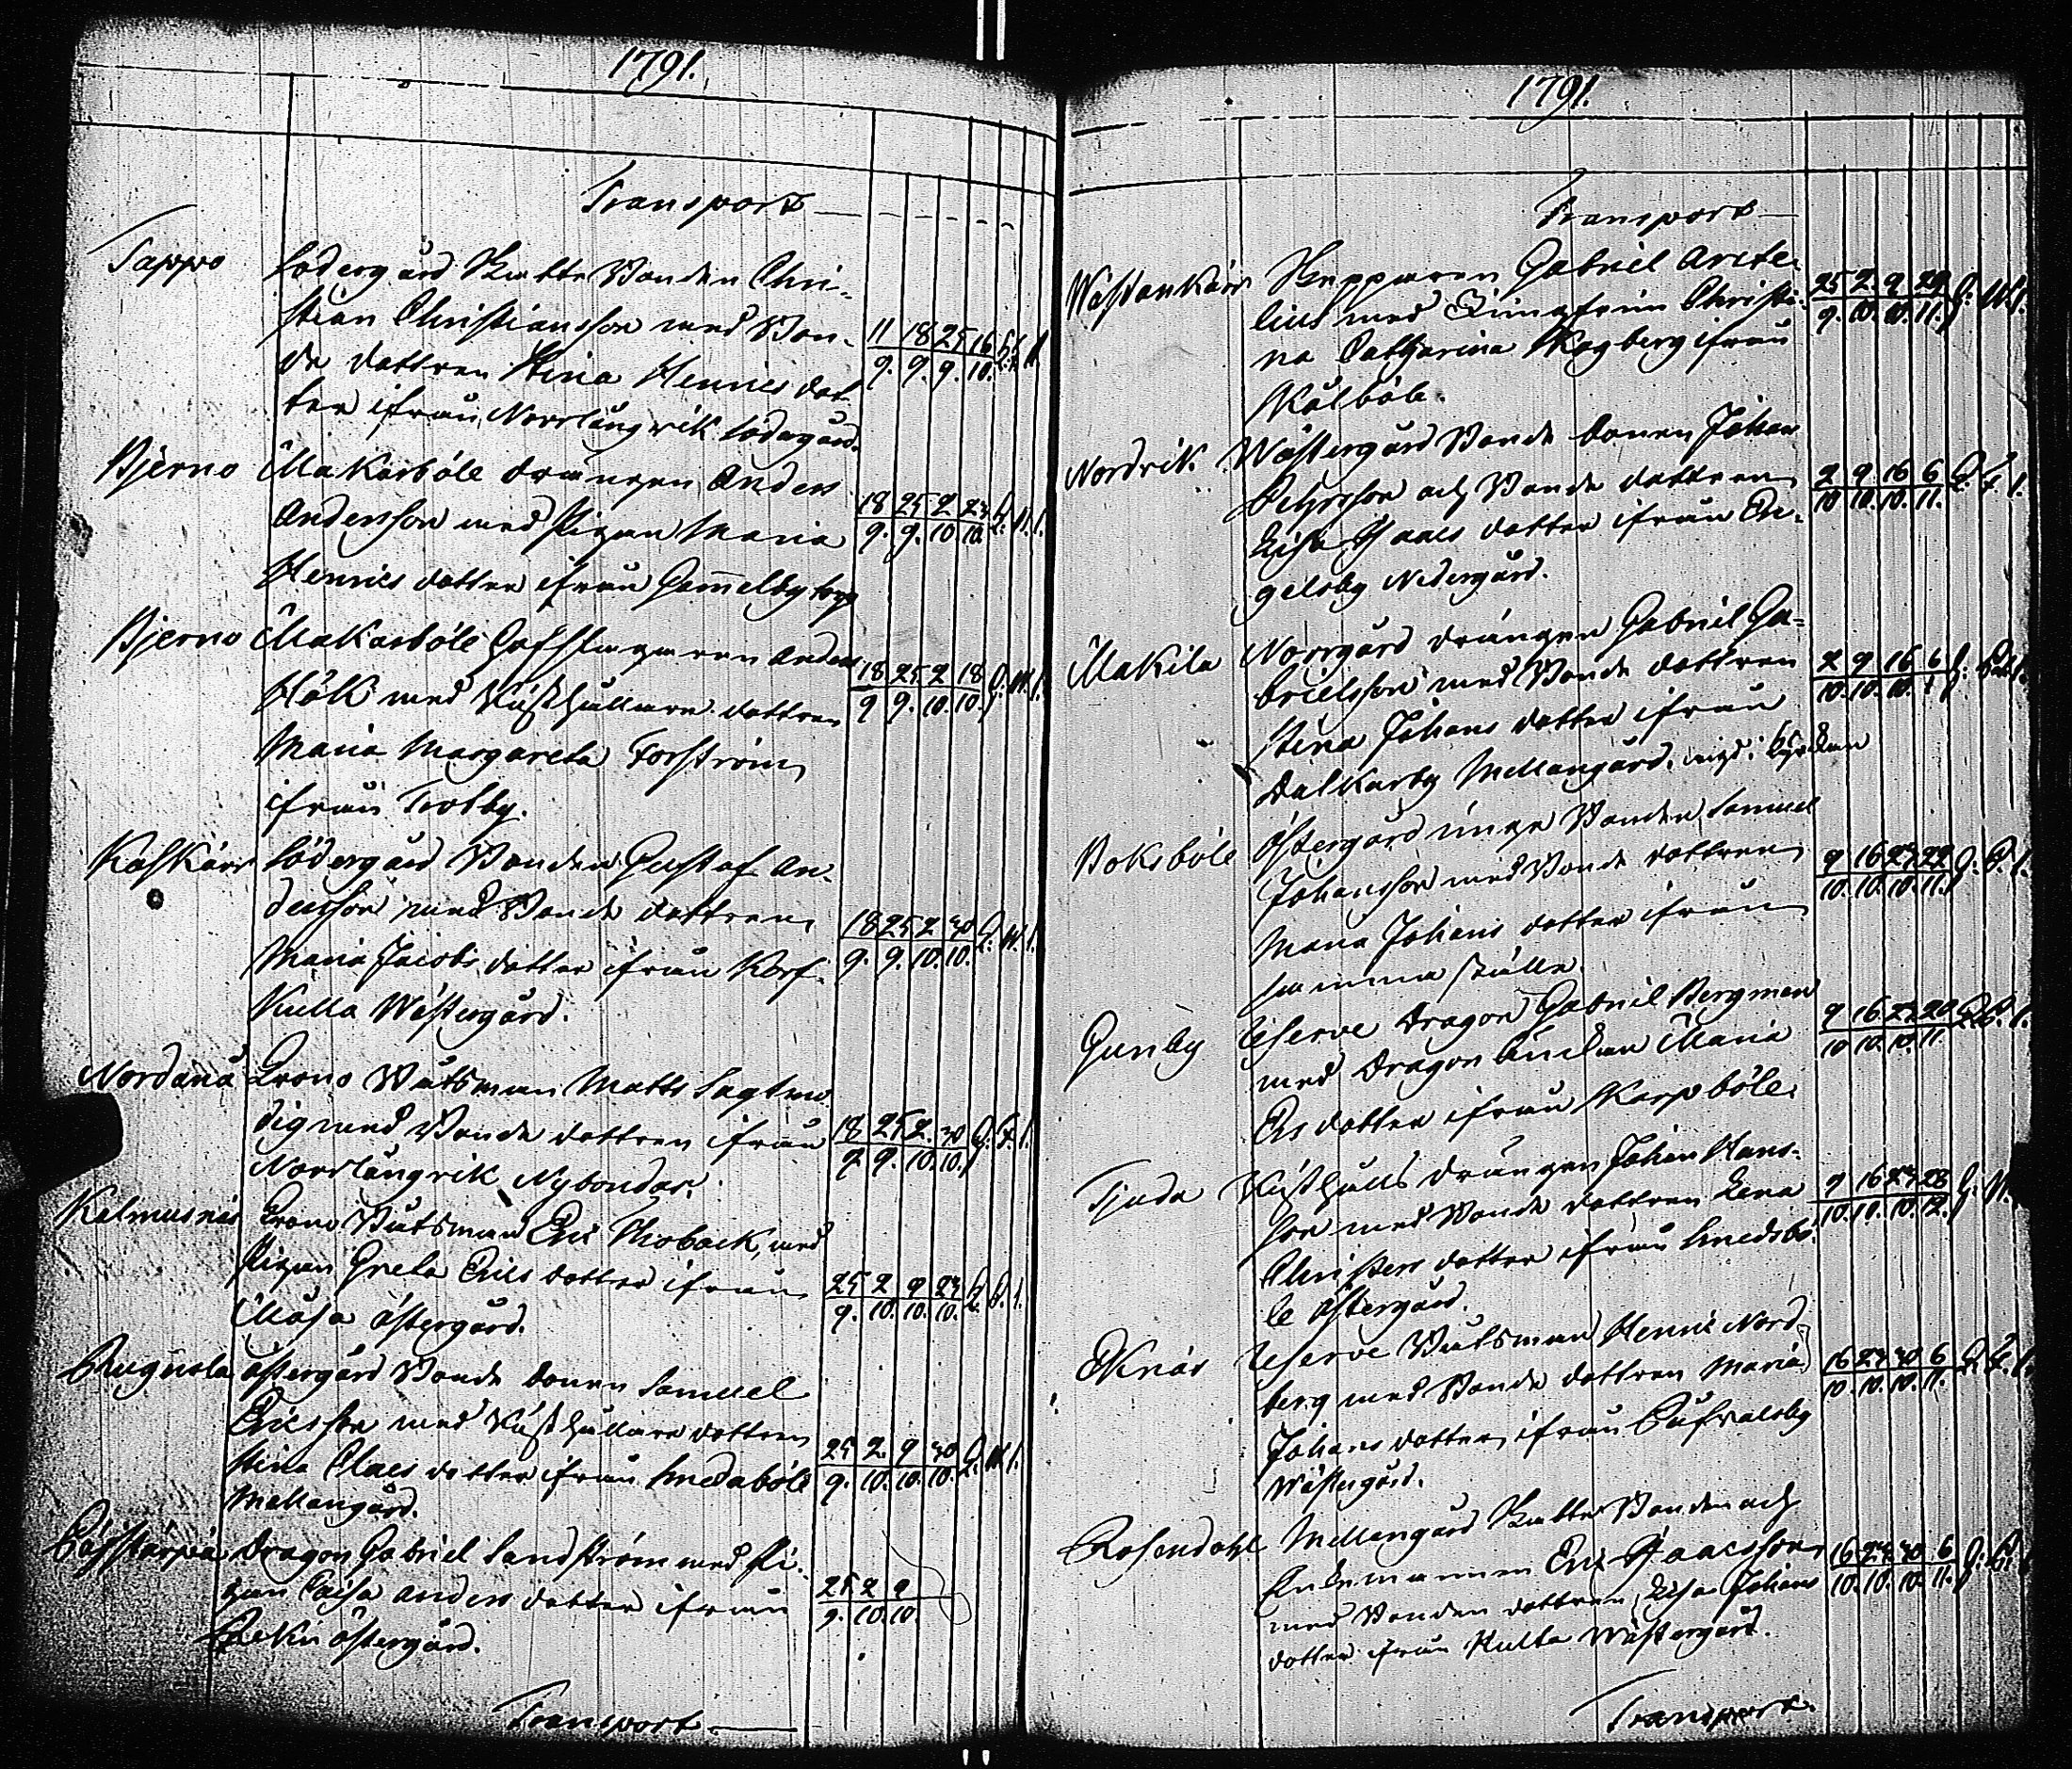 1791.
Transport
Tappo Södergård Skatte Bonden Chri-
stian Christiansson med Bon-
de dottren Stina Henrics dot-
ter ifrån Norrlångvik Södergård.
11 18 25 16
9. 9. 9. 10.
Bjerno Makarböle drängen Anders
Andersson med Pigan Maria
Henrics dotter ifrån Gammelby torp
18 25 2 23
9. 9. 10 10.
Bjerno Makarböle Gefstagaren Anders
Hök med Rusthållare dottren
Maria Margareta Forström
ifrån Trotby.
18 25 2 18
9 9. 10. 10.
Kalkärr Södergård Bonden Gustaf An-
dersson med Bonde dottren
Maria Jacobs dotter ifrån Korf-
kulla Wästergård.
18 25 2 30
9. 9. 10. 10.
Nordanå Crono Båtsman Matts Sagtmo-
dig med Bonde dottren ifrån
Norrlångvik Nybondas.
18 25 2. 30
9. 9. 10. 10.
Kalmusnäs Crono Båtsman Eric Moback, med
Pigan Greta Erics dotter ifrån
Måsa Östergård.
25 2 9 23
9. 10. 10. 10.
Rugnola Östergård Bonde Sonen Samuel
Ericsson med Rusthållare dottren
Stina Claes dotter ifrån Smedaböle
Mellangård.
25 2. 9 30
9. 10. 10. 10.
Dragon Gabriel Sandström med Pi-
gan Caisa Anders dotter ifrån
Östergård.
25 2 9
9. 10. 10.
Transport
1791.
Transport
Wästankärr Skepparen Gabriel Arcte-
lius med Jungfrun Christi-
na Catharina Skogberg ifrån
Skålböle.
25 2 9 29
9. 10. 10. 11.
Nordvik Wästergård Bonde Sonen Johan
Petersson och Bonde dottren
Lisa Isaacs dotter ifrån En-
gelsby Nedergård.
2 9 16 6
10 10. 10. 11.
Makila Norrgård drängen Gabriel Ga-
brielsson med Bonde dottren
Stina Johans dotter ifrån
Dalkarby Mellangård.
2 9 16 6
10. 10. 10.
Boksböle Östergård unge Bonden Samuel
Johansson med Bonde dottren
Maria Johans dotter ifrån
samma ställe.
9 16 23 22
10. 10. 10. 11.
Gunby Reserve Dragon Gabriel Bergman
med Dragon Enckan Maria
Ers dotter ifrån Skarpböle.
9 16 23 20
10 10. 10. 11.
Tjuda Rusthålls drängen Johan Hans-
son med Bonde dottren Lena
Christers dotter ifrån Smedsbö-
le Östergård.
9 16 23 28
10. 10. 10. 12.
Eknäs Reserve Båtsman Henric Nord-
berg med Bonde dottren Maria
Johans dotter ifrån
Wästergård.
16 23 30 6
10. 10. 10. 11.
Rosendahl Mellangård Skatte Bonden och
Enkemannen Eric Isaacsson
med Bonden dottren, Lisa Johans
dotter ifrån Kulla Wästergård.
16 23 30 6
10. 10. 10. 11.
Transport.